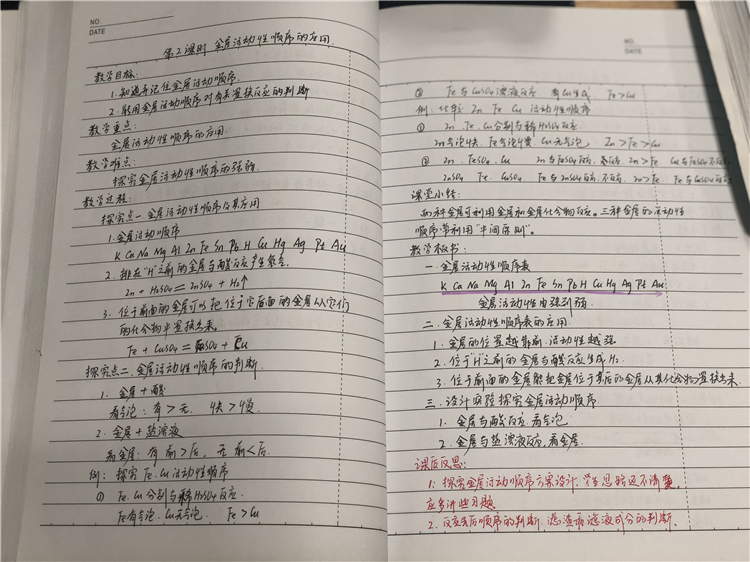 NO.
DATE
第2课时 金属活动性顺序的应用
教学目标:
1.知道并记住金属活动顺序.
2.能用金属活动顺序对有关置换反应的判断
教学重点:
金属活动性顺序的应用
教学难点:
探究金属活动性顺序的强弱
教学过程:
探究点一 金属活动性顺序及其应用
1.金属活动顺序
K Ca Na Mg Al Zn Fe Sn Pb H Cu Hg Ag Pt Au
2.排在"H"之前的金属与酸反应产生氢气.
Zn + H₂SO₄ = ZnSO₄ + H₂↑
3.位于前面的金属可以把位于它后面的金属从它们
的化合物中置换出来.
Fe + CuSO₄ = FeSO₄ + Cu
探究点二 金属活动性顺序的判断
1.金属+酸
看气泡:有>无. 快>慢
2.金属+盐溶液
看金属:有 前>后, 无 前<后.
例:探究Fe.Cu活动性顺序
① Fe.Cu分别与稀H₂SO₄反应.
Fe有气泡. Cu无气泡. Fe>Cu
NO.
DATE
② Fe与CuSO₄溶液反应 有Cu生成 Fe>Cu
例:比较Zn Fe Cu 活动性顺序
① Zn Fe Cu分别与稀H₂SO₄反应.
Zn气泡快 Fe气泡慢 Cu无气泡, Zn>Fe>Cu
② Zn. FeSO₄. Cu Zn与FeSO₄反应. Zn>Fe Cu与FeSO₄不反应
ZnSO₄ Fe CuSO₄ Fe与ZnSO₄不反应. Zn>Fe Fe与CuSO₄反应
课堂小结:
两种金属可利用金属和金属化合物反应。三种金属的活动性
顺序常利用"中间原则"。
教学板书:
一.金属活动性顺序表
K Ca Na Mg Al Zn Fe Sn Pb H Cu Hg Ag Pt Au
金属活动性由强到弱
二.金属活动性顺序表的应用
1.金属的位置越靠前,活动性越强
2.位于"H"之前的金属与酸反应生成H₂.
3.位于前面的金属能把金属位于其后的金属从其化合物置换出来.
三.设计实验探究金属活动顺序
1.金属与酸反应,看气泡
2.金属与盐溶液反应,看金属.
课后反思:
1.探究金属活动顺序方案设计,学生思路还不清楚,
应多讲些习题.
2.反应先后顺序的判断.滤渣和滤液成分的判断.